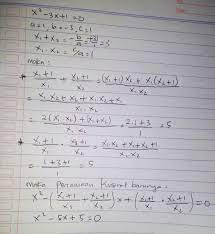 x² - 3x + 1 = 0
a = 1, b = -3, c = 1
x₁ + x₂ = -b/a = 3/1 = 3
x₁ . x₂ = c/a = 1
Maka :
* (x₁+1)/x₁ + (x₂+1)/x₂ = ((x₁+1)x₂ + x₁(x₂+1))/(x₁ x₂)
= (x₁x₂ + x₂ + x₁x₂ + x₁)/(x₁ x₂)
= (2(x₁ x₂) + (x₁+x₂))/(x₁ x₂) = (2.1+3)/1 = 5
* (x₁+1)/x₁ . (x₂+1)/x₂ = (x₁x₂ + x₁ + x₂ + 1)/(x₁ x₂)
= (1+3+1)/1 = 5
Maka Persamaan Kuadrat barunya :
x² - ((x₁+1)/x₁ + (x₂+1)/x₂) x + ((x₁+1)/x₁ . (x₂+1)/x₂) = 0
x² - 5x + 5 = 0